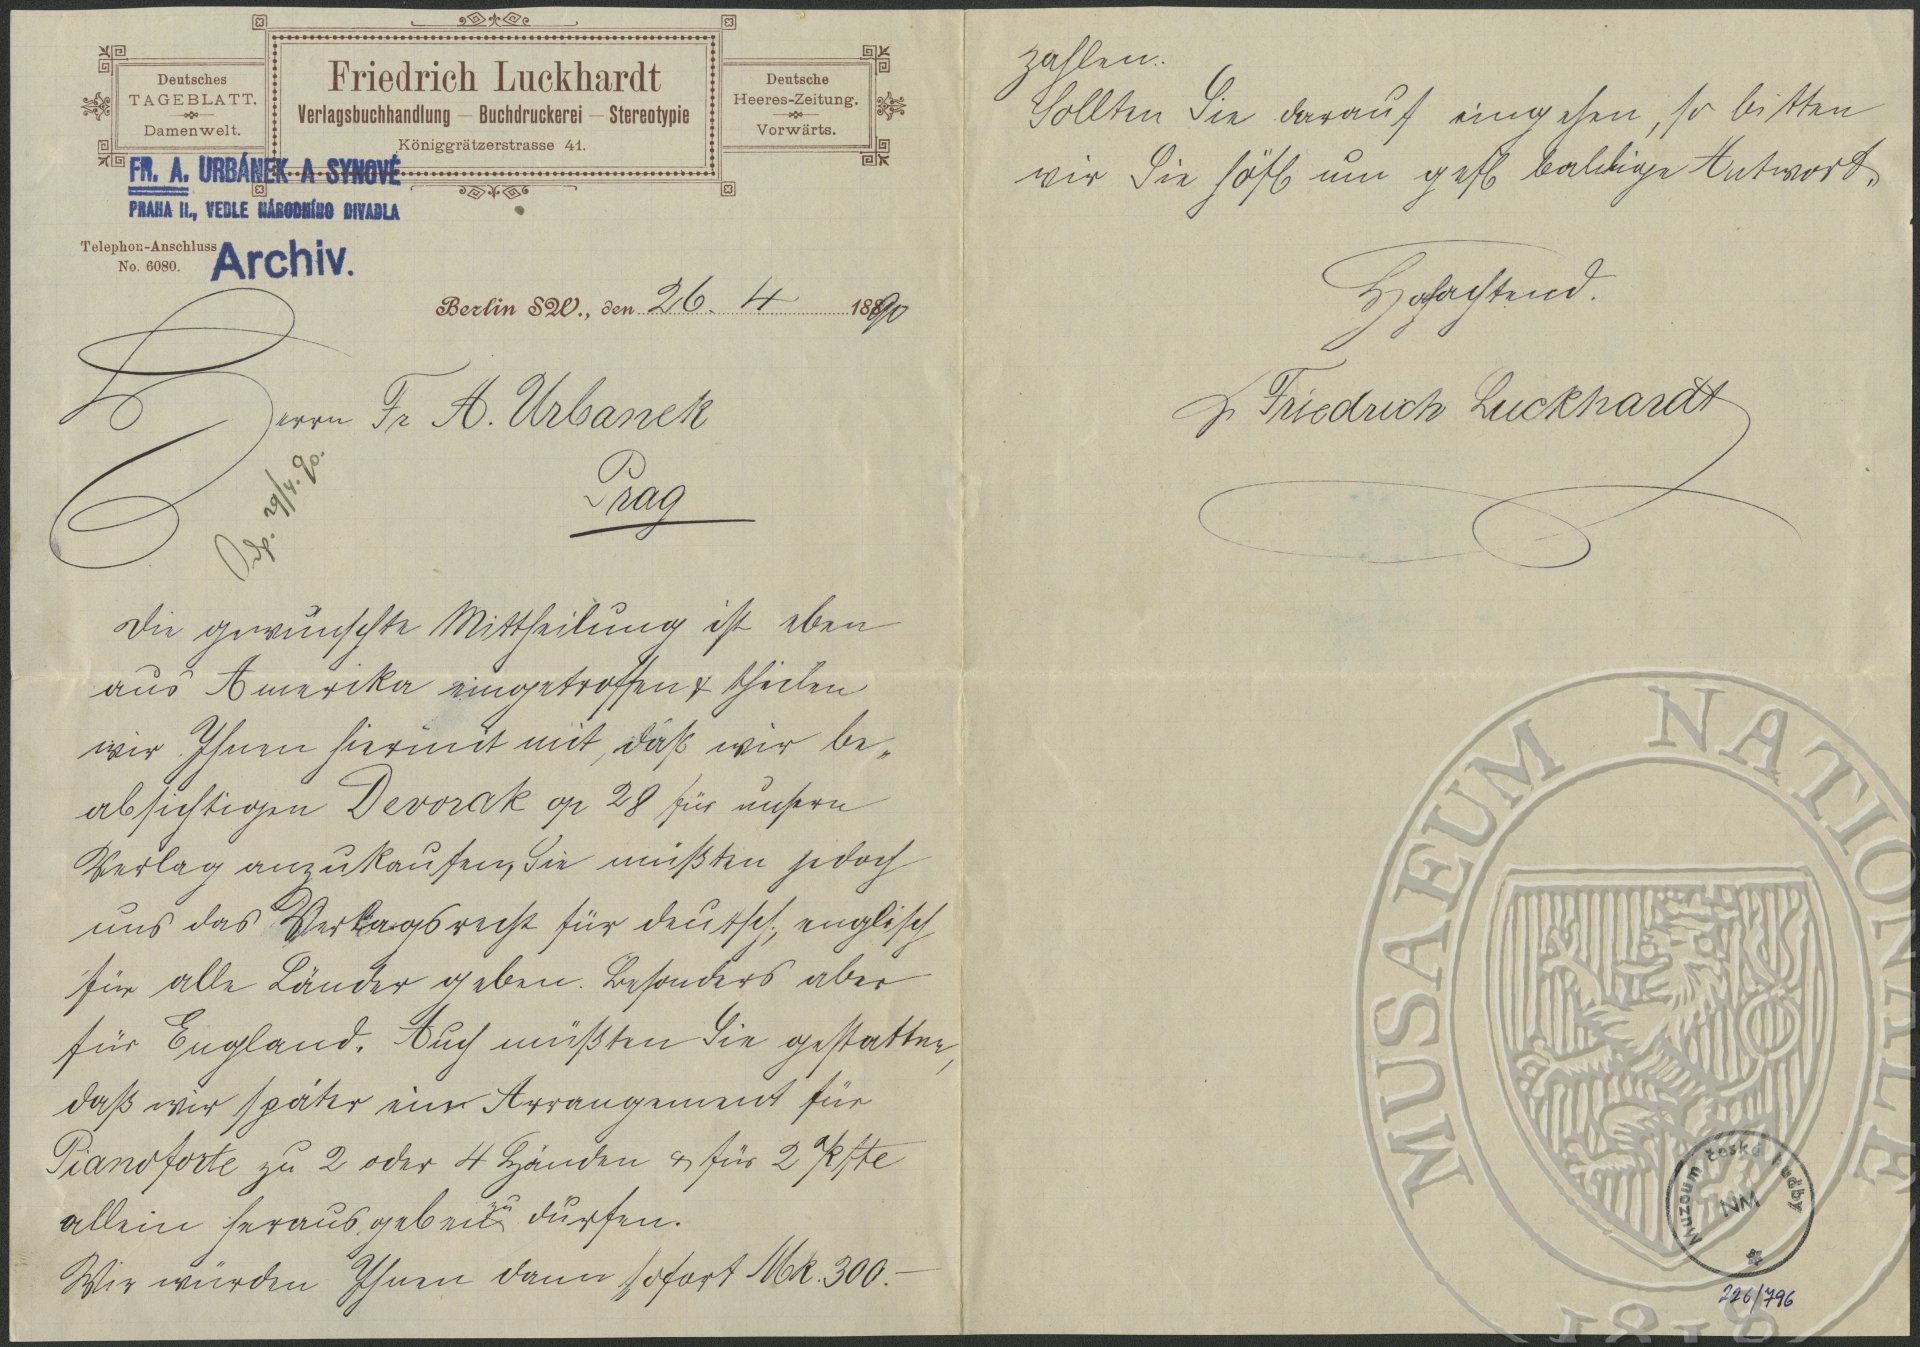 Deutsches
TAGEBLATT.
Damenwelt.
Friedrich Luckhardt
Verlagsbuchhandlung — Buchdruckerei — Stereotypie
Königgrätzerstrasse 41.
Deutsche
Heeres-Zeitung.
Vorwärts.
FR. A. URBÁNEK A SYNOVÉ
PRAHA II., VEDLE NÁRODNÍHO DIVADLA
Telephon-Anschluss
No. 6080.
Archiv.
Berlin SW., den 26. 4 1890
Herrn Fr A. Urbanek
Prag
29/4. 90.
Die gewünschte Mittheilung ist eben
aus Amerika eingetroffen & theilen
wir Ihnen hiermit mit, daß wir be-
absichtigen Devorak op 28 für unsern
Verlag anzukaufen, Sie müßten jedoch
uns das Verlagsrecht für deutsch, englisch
für alle Länder geben. Besonders aber
für England. Auch müßten Sie gestatten,
daß wir später ein Arrangement für
Pianoforte zu 2 oder 4 Händen & für 2 Pfte
allein herausgeben zu dürfen.
Wir würden Ihnen dann sofort Mk. 300.—
zahlen.
Sollten Sie darauf eingehen, so bitten
wir Sie höfl um gefl baldige Antwort.
Hochachtend.
Friedrich Luckhardt
MUSAEUM NATIONALE
1818
Muzeum české hudby
NM
226/796